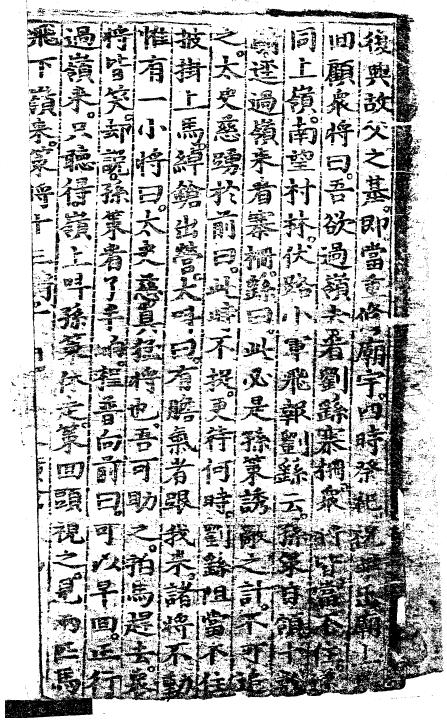 復興故父之基即當重修廟宇四時祭祀祝畢出廟上
回顧衆將曰吾欲過嶺去看劉繇寨柵衆將皆當不住
同上嶺南望村林伏路小軍飛報劉繇云孫策自領十
逕過嶺來看寨柵繇曰此必是孫策誘敵之計不可追
之太史慈踴於前曰此時不捉更待何時劉繇阻當不住
披掛上馬綽鎗出營大叫曰有膽氣者跟我來諸將不動
惟有一小將曰太史慈真猛將也吾可助之拍馬趕去衆
將皆笑却說孫策看了半晌程普向前曰可以早回正行
過嶺來只聽得嶺上叫孫策休走策回頭視之見兩匹馬
飛下嶺來策將十三